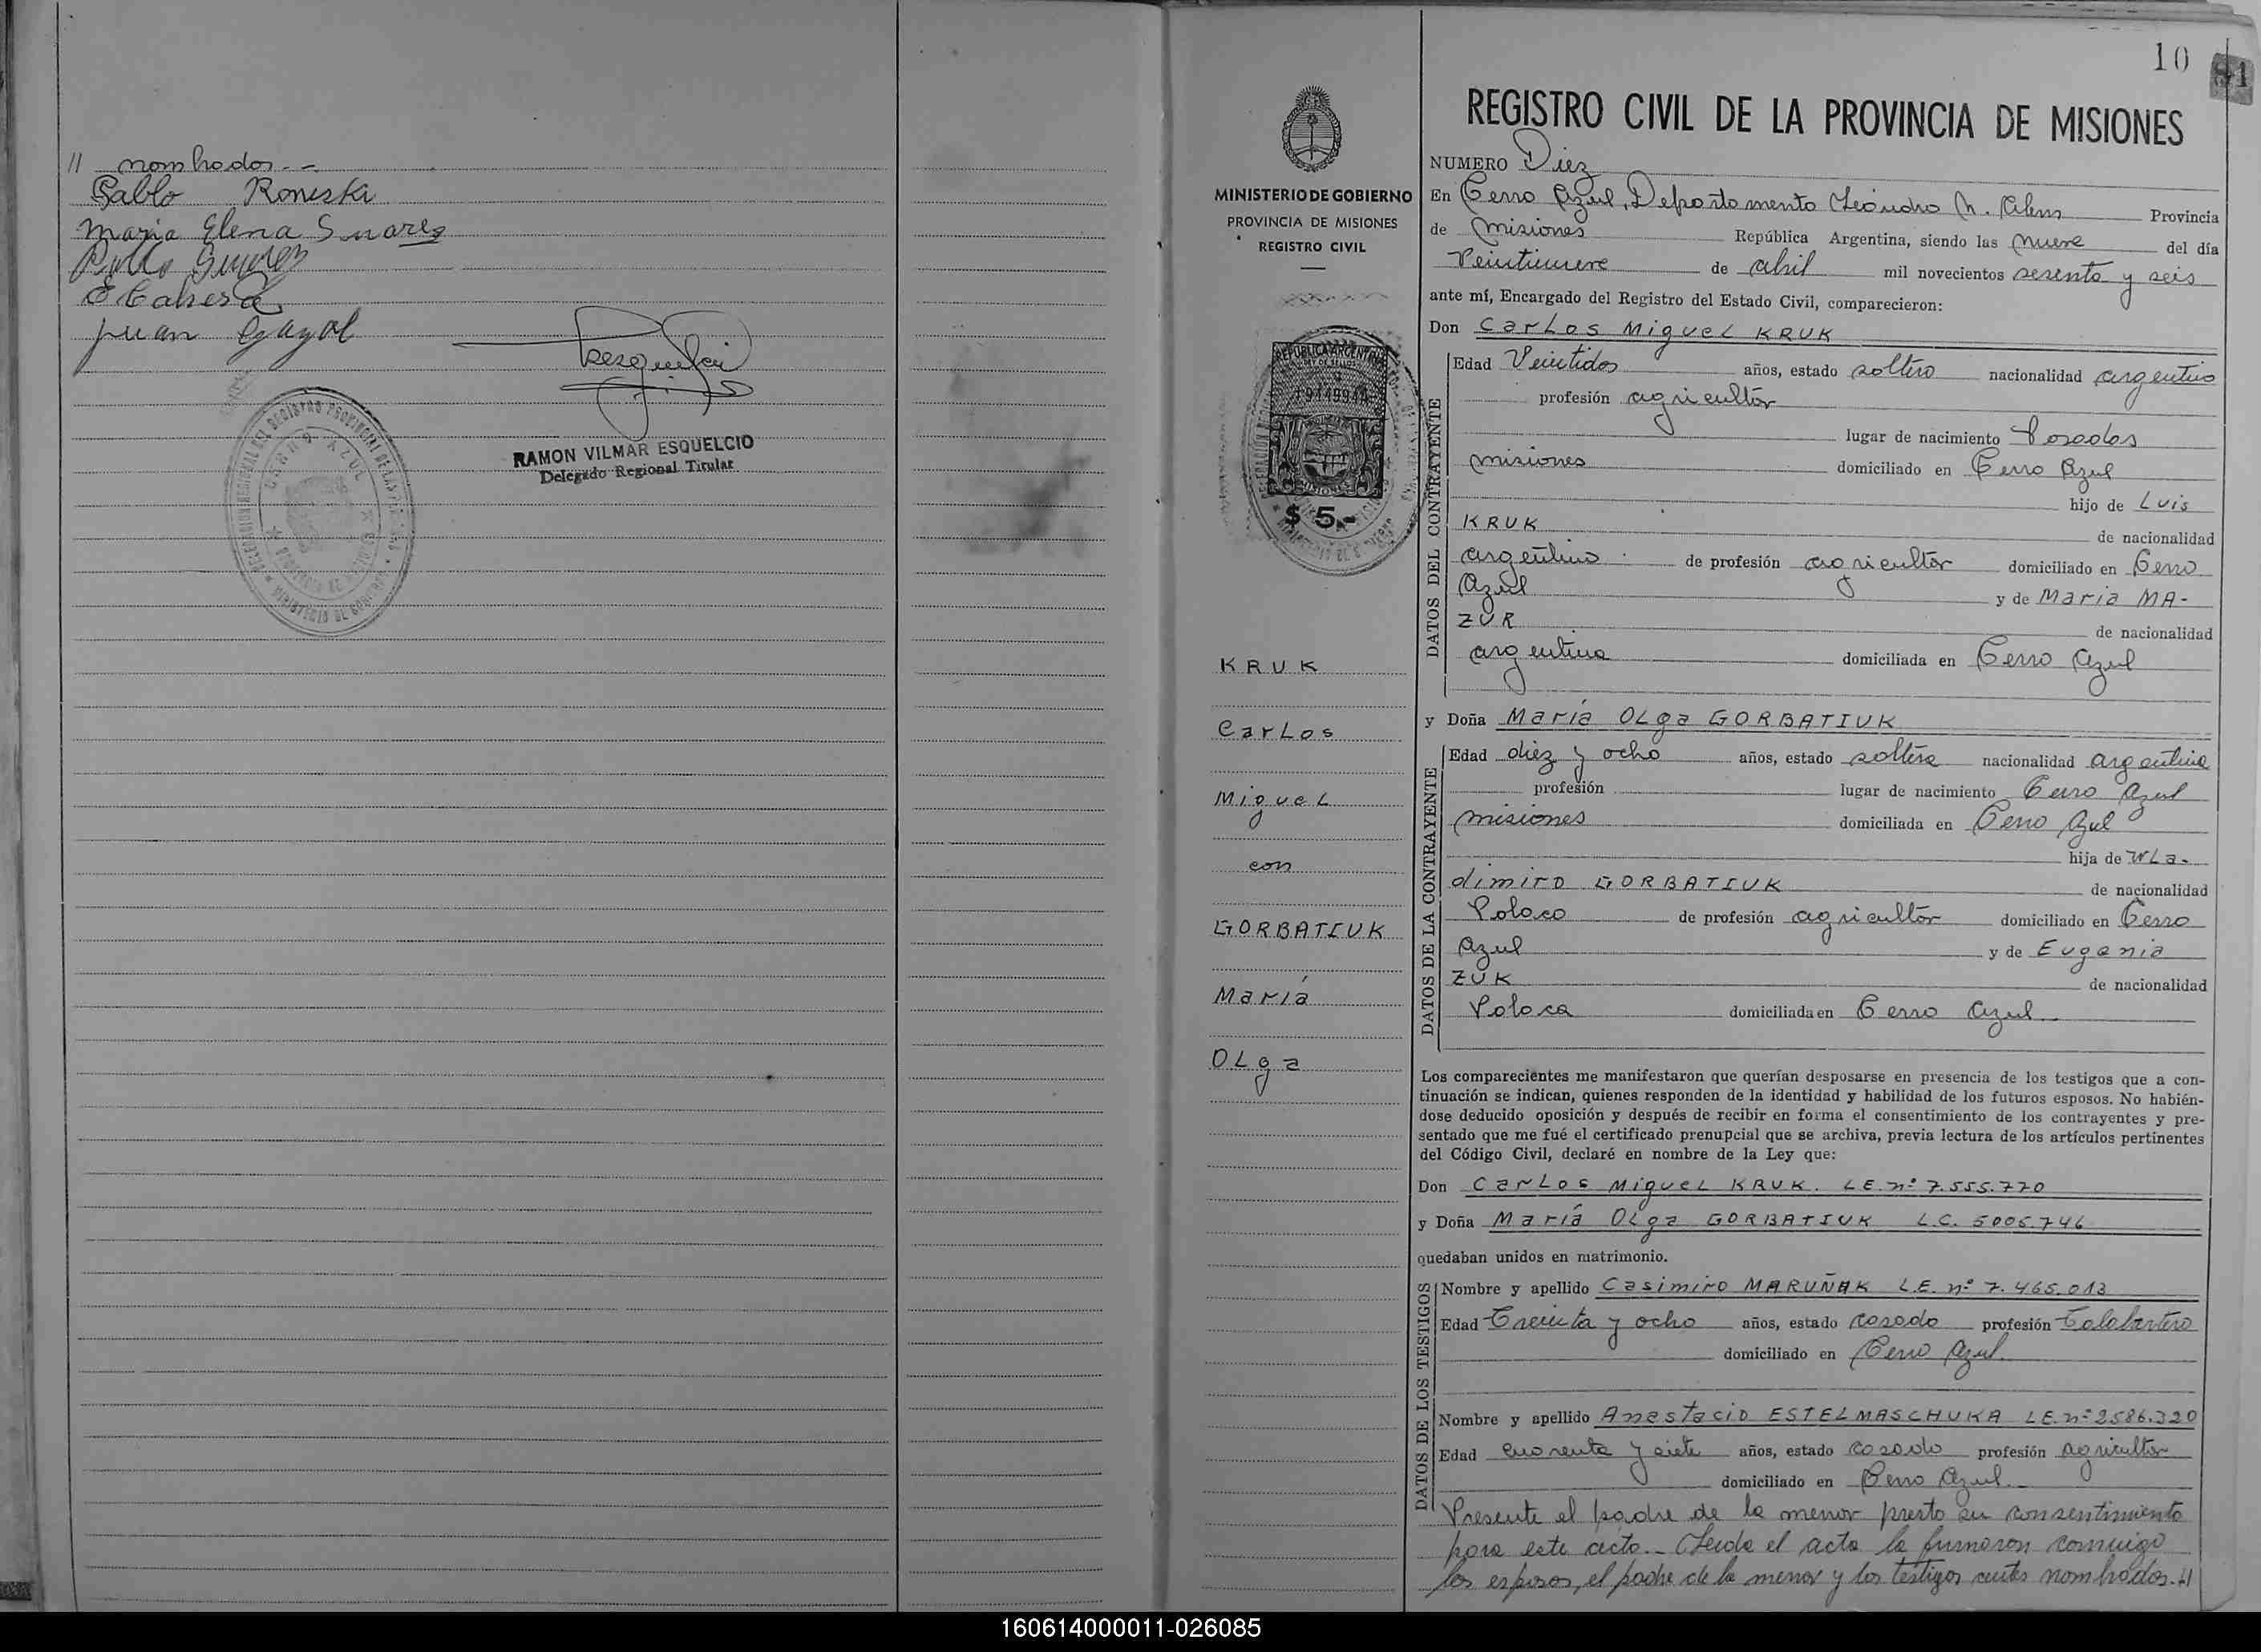 // nombrados.-
Pablo Roneski
Maria Elena Suarez
E Cabrera
Juan Gayol
RAMON VILMAR ESQUELCIO
Delegado Regional Titular
CERRO AZUL
10
REGISTRO CIVIL DE LA PROVINCIA DE MISIONES
MINISTERIO DE GOBIERNO
PROVINCIA DE MISIONES
REGISTRO CIVIL
REPUBLICA ARGENTINA
LEY DE SELLOS
MISIONES
$ 5.-
KRUK
Carlos
Miguel
con
GORBATIUK
María
Olga
NUMERO Diez
En Cerro Azul, Departamento Leandro N. Alem Provincia
de Misiones República Argentina, siendo las nueve del día
Veintinueve de abril mil novecientos sesenta y seis
ante mí, Encargado del Registro del Estado Civil, comparecieron:
Don Carlos Miguel KRUK
DATOS DEL CONTRAYENTE
Edad Veintidos años, estado soltero nacionalidad argentino
profesión agricultor
lugar de nacimiento Posadas
Misiones domiciliado en Cerro Azul
hijo de Luis
KRUK de nacionalidad
argentino de profesión agricultor domiciliado en Cerro
Azul y de María MA-
ZUR de nacionalidad
argentina domiciliada en Cerro Azul
y Doña María Olga GORBATIUK
DATOS DE LA CONTRAYENTE
Edad diez y ocho años, estado soltera nacionalidad argentina
profesión lugar de nacimiento Cerro Azul
Misiones domiciliada en Cerro Azul
hija de Wla-
dimiro GORBATIUK de nacionalidad
Polaco de profesión agricultor domiciliado en Cerro
Azul y de Eugenia
ZUK de nacionalidad
Polaca domiciliada en Cerro Azul
Los comparecientes me manifestaron que querían desposarse en presencia de los testigos que a con-
tinuación se indican, quienes responden de la identidad y habilidad de los futuros esposos. No habién-
dose deducido oposición y después de recibir en forma el consentimiento de los contrayentes y pre-
sentado que me fué el certificado prenupcial que se archiva, previa lectura de los artículos pertinentes
del Código Civil, declaré en nombre de la Ley que:
Don Carlos Miguel KRUK. L.E. nº 7.555.770
y Doña María Olga GORBATIUK L.C. 5005.746
quedaban unidos en matrimonio.
DATOS DE LOS TESTIGOS
Nombre y apellido Casimiro MARUÑAK L.E. nº 7.465.013
Edad Treinta y ocho años, estado casado profesión Talabartero
domiciliado en Cerro Azul.
Nombre y apellido Anastacio ESTELMASCHUKA L.E. nº 2586.320
Edad cuarenta y siete años, estado casado profesión agricultor
domiciliado en Cerro Azul.
Presente el padre de la menor presto su consentimiento
para este acto.- Leida el acta la firmaron conmigo
los esposos, el padre de la menor y los testigos antes nombrados.-//
160614000011-026085